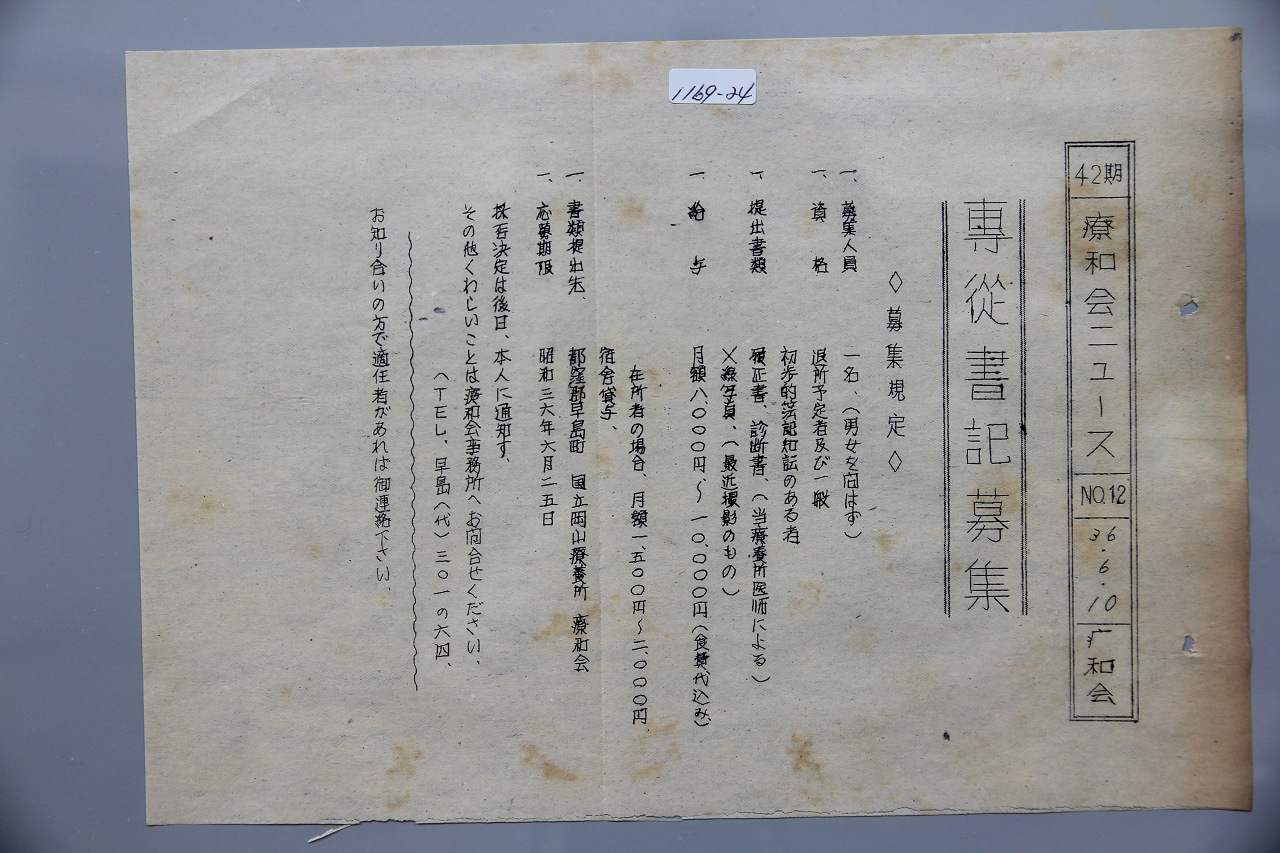 1169-24
42期 療和会ニュース NO.12 36.6.10 疒和会
専従書記募集
◇募集規定◇
一、募集人員 一名、(男女を向はず)
一、資格 退所予定者及び一般
初歩的簿記知識のある者
一、提出書類 履歴書、診断書、(当療養所医师による)
X線写真、(最近撮影のもの)
一、給与 月額八、〇〇〇円、〜一〇、〇〇〇円(食費代込み)
在所者の場合、月額一、五〇〇円〜二、〇〇〇円
宿舎貸与、
一、書類提出先、 都窪郡早島町 国立岡山療養所 療和会
一、応募期限 昭和三六年六月二五日
採否決定は後日、本人に通知す、
その他くわしいことは療和会事務所へお向合せください、
(TEL、早島(代)三〇一の六四、
お知り合いの方で適任者があれば御連絡下さい、